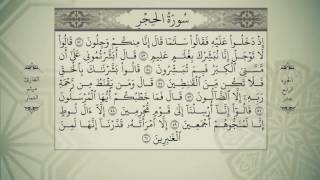 سُورَةُ الحِجْرِ
إِذْ دَخَلُوا۟ عَلَيْهِ فَقَالُوا۟ سَلَٰمًا قَالَ إِنَّا مِنكُمْ وَجِلُونَ ٥٢ قَالُوا۟
لَا تَوْجَلْ إِنَّا نُبَشِّرُكَ بِغُلَٰمٍ عَلِيمٍ ٥٣ قَالَ أَبَشَّرْتُمُونِى عَلَىٰٓ أَن
مَّسَّنِىَ ٱلْكِبَرُ فَبِمَ تُبَشِّرُونَ ٥٤ قَالُوا۟ بَشَّرْنَٰكَ بِٱلْحَقِّ
فَلَا تَكُن مِّنَ ٱلْقَٰنِطِينَ ٥٥ قَالَ وَمَن يَقْنَطُ مِن رَّحْمَةِ
رَبِّهِۦٓ إِلَّا ٱلضَّآلُّونَ ٥٦ قَالَ فَمَا خَطْبُكُمْ أَيُّهَا ٱلْمُرْسَلُونَ
٥٧ قَالُوٓا۟ إِنَّآ أُرْسِلْنَآ إِلَىٰ قَوْمٍ مُّجْرِمِينَ ٥٨ إِلَّآ ءَالَ لُوطٍ
إِنَّا لَمُنَجُّوهُمْ أَجْمَعِينَ ٥٩ إِلَّا ٱمْرَأَتَهُۥ قَدَّرْنَآ إِنَّهَا لَمِنَ
ٱلْغَٰبِرِينَ ٦٠
الجزء
الرابع
عشر
القارئ